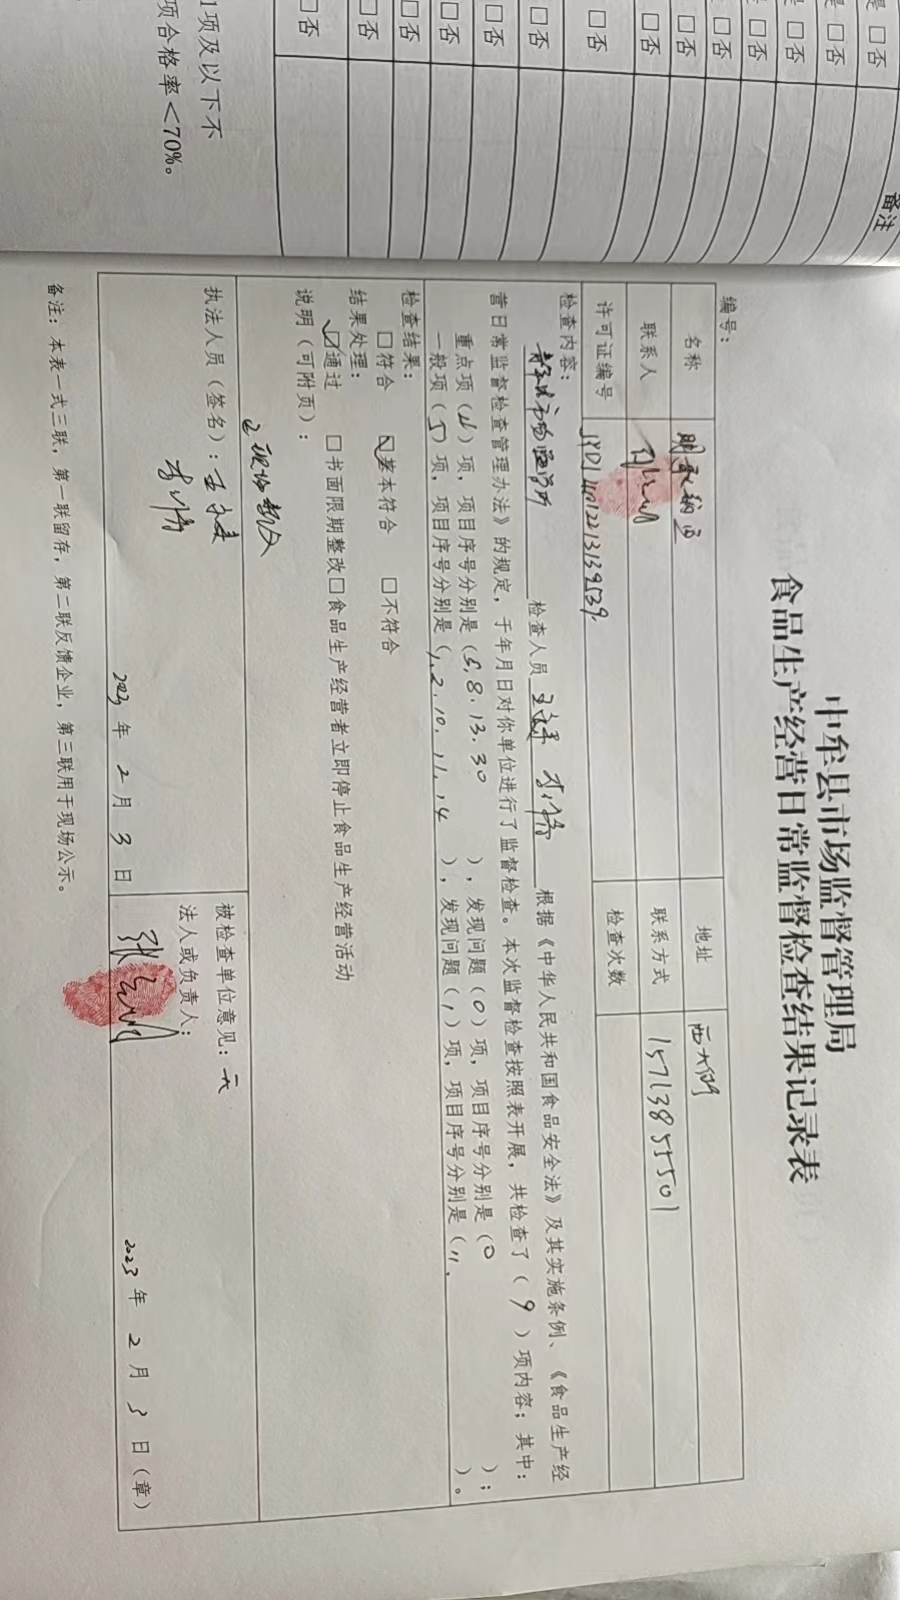 是 □否
是 □否
是 □否
□否
□否
□否
□否
□否
□否
□否
□否
□否
□否
□否
备注
1项及以下不
项合格率＜70%。
中牟县市场监督管理局
食品生产经营日常监督检查结果记录表
编号：
名称 地址
联系人 联系方式 15713855501
许可证编号 检查次数
检查内容：
检查人员 根据《中华人民共和国食品安全法》及其实施条例、《食品生产经
营日常监督检查管理办法》的规定，于年月日对你单位进行了监督检查。本次监督检查按照表开展，共检查了（9）项内容；其中：
重点项（4）项，项目序号分别是（5、8、13、30），发现问题（0）项，项目序号分别是（0）；
一般项（5）项，项目序号分别是（1、2、10、11、14），发现问题（1）项，项目序号分别是（11、）。
检查结果：
□符合 ☑基本符合 □不符合
结果处理：
☑通过 □书面限期整改□食品生产经营者立即停止食品生产经营活动
说明（可附页）：
执法人员（签名）：
2023 年 2 月 3 日
被检查单位意见：
法人或负责人：
2023 年 2 月 3 日（章）
备注：本表一式三联，第一联留存，第二联反馈企业，第三联用于现场公示。